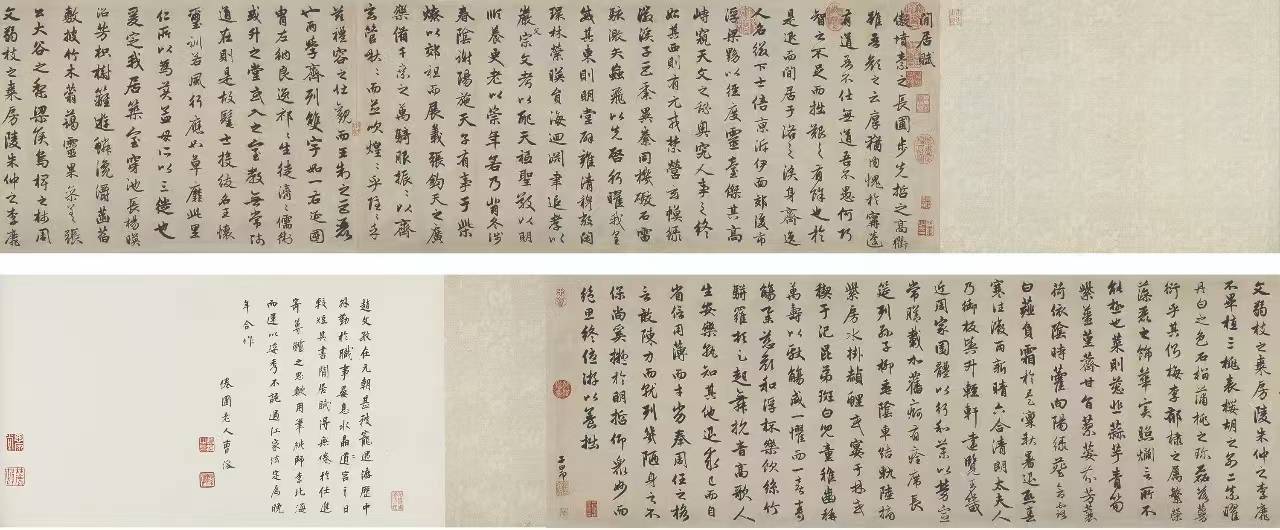 閒居賦
傲墳素之長圃步先哲之高衢
雖吾顏之云厚猶內愧於甯蘧
有道吾不仕無道吾不愚何巧
智之不足而拙艱之有餘也於
是退而閒居于洛之涘身齊逸
人名後下士倍京泝伊面郊後市
浮梁黝以徑度靈臺傑其高
峙窺天文之秘奧究人事之終
始其西則有元戎禁營玄幙綠
徽谿子巨黍異絭同機礮石雷
駭激矢蝱飛以先啓行曜我皇
威其東則明堂辟雍清穆敞閑
環林縈暎負海迴淵聿追孝以
嚴父宗文考以配天祗聖敬以明
順養更老以崇年若乃背冬涉
春陰謝陽施天子有事于柴
燎以郊祖而展義張鈞天之廣
樂備千乘之萬騎服振振以齊
玄管啾啾而並吹煌煌乎隱隱乎
茲禮容之壯觀而王制之巨麗
也兩學齊列雙宇如一右延國
胄左納良逸祁祁生徒濟濟儒術
或升之堂或入之室教無常師
道在則是故髦士投紱名王懷
璽訓若風行應如草靡此里
仁所以為美孟母所以三徙也
爰定我居築室穿池長楊暎
沼芳枳樹籬遊鱗瀺灂菡萏
敷披竹木蓊藹靈果參差張
公大谷之梨梁侯烏椑之柿周
文弱枝之棗房陵朱仲之李靡
文弱枝之棗房陵朱仲之李靡
不畢植三桃表櫻胡之別二柰曜
丹白之色石榴蒲桃之珍磊落蔓
衍乎其側梅李郁棣之屬繁榮
藻麗之飾華實照爛言所不
能極也菜則葱韭蒜芋青筍
紫薑堇薺甘旨蓼荾芬芳蘘
荷依陰時藿向陽綠葵含露
白薤負霜於是凜秋暑退熙春
寒往微雨新晴六合清朗太夫人
乃御板輿升輕軒遠覽王畿
近周家園體以行和藥以勞宣
常膳載加舊痾有痊席長
筵列孫子柳垂陰車結軌陸摘
紫房水掛頳鯉或宴于林或
禊于汜昆弟斑白兒童稚齒稱
萬壽以獻觴咸一懼而一喜壽
觴舉慈顏和浮杯樂飲絲竹
駢羅頓足起舞抗音高歌人
生安樂孰知其他退求己而自
省信用薄而才劣奉周任之格
言敢陳力而就列幾陋身之不
保尚奚擬於明哲仰衆妙而
絕思終優游以養拙
子昂
趙文敏在元朝甚被寵遇海歷中
外勤於職事晏息水晶道宮之日
較短其書閒居賦得無倦於仕進
寄蓴鱸之思歟用筆純師李北海
而運以姿秀不識過江家法定為晚
年合作
倦圃老人曹溶